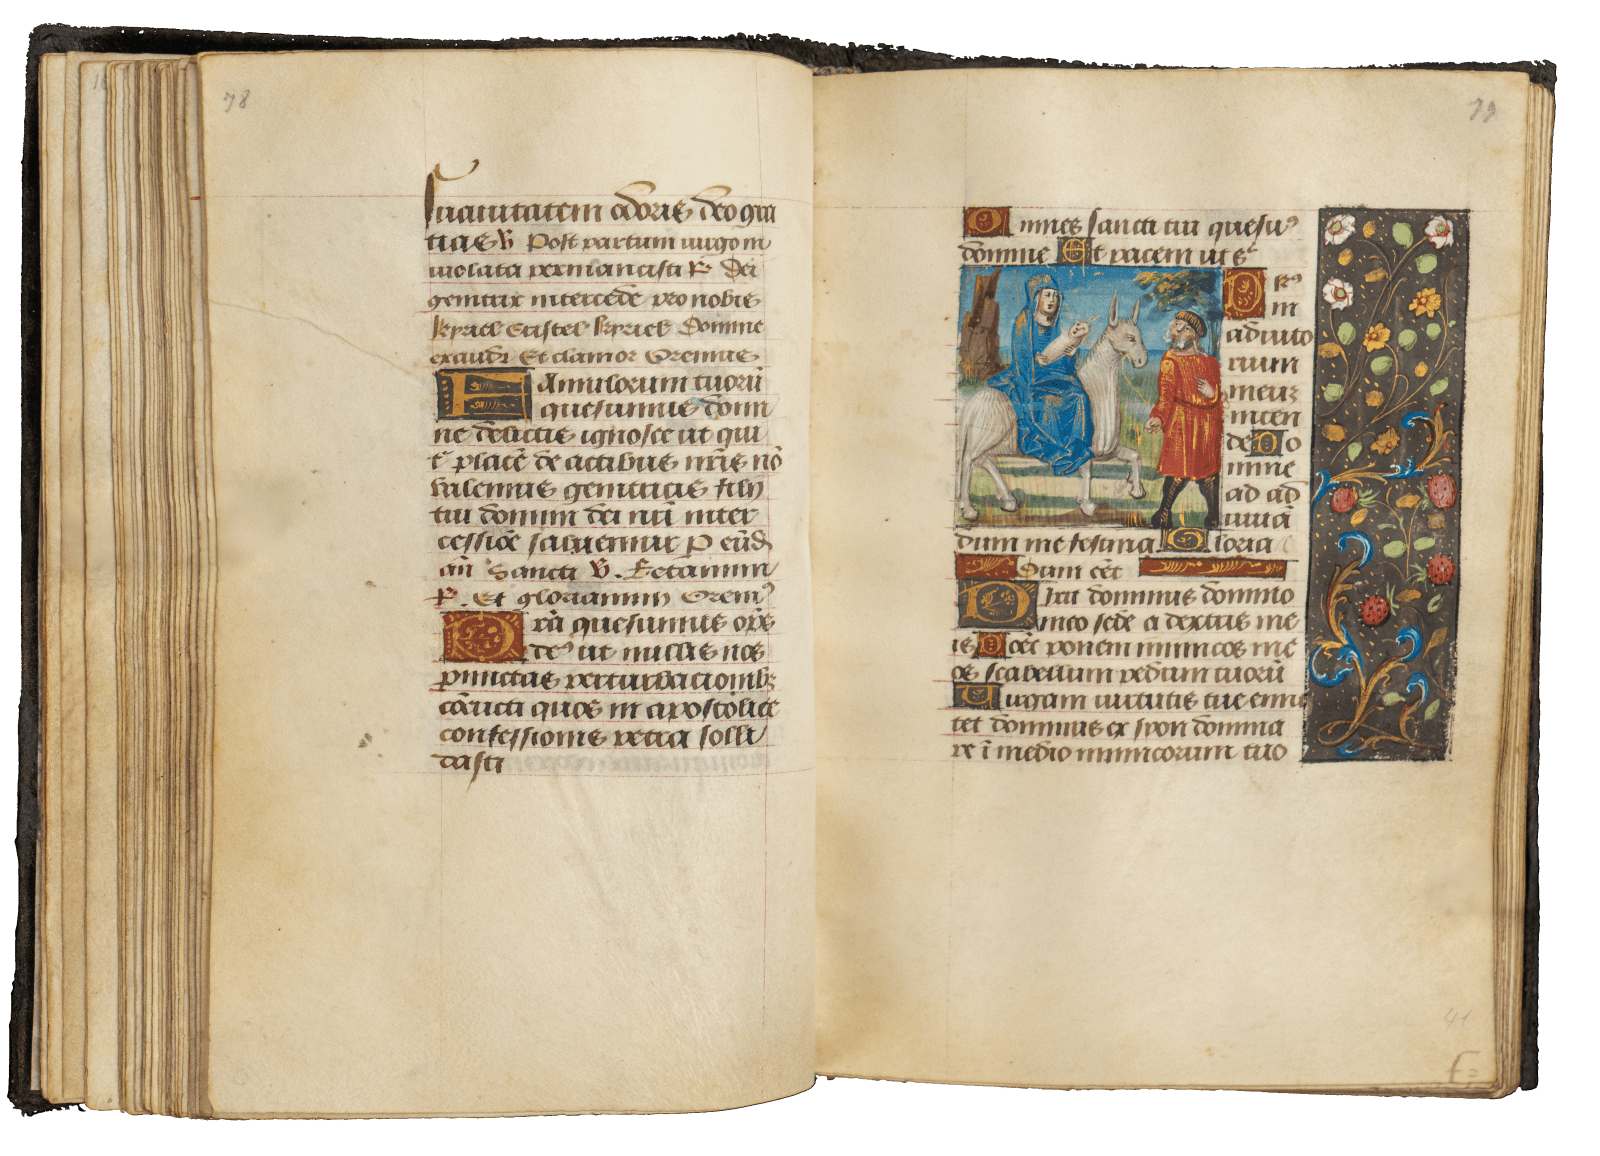 78
suauitatem odoris deo gra
tias ℣ Post partum uirgo in
uiolata permansisti ℟ Dei
genitrix intercede pro nobis
kyriel Eristel kyriel Domine
exaudi Et clamor Oremus
Famulorum tuorū
quesumus domi
ne delictis ignosce ut qui
t᷑ placē de actibus nr̄is nō
valemus genitricis filij
tui domini dei nr̄i inter
cessiōe saluemur p eūd
an̄ Sancti ℣. Letamini
℟. Et gloriamini Oremꝰ
Pr̄a quesumus op̄s
deꝰ ut nullis nos
p̱mittas perturbacionibꝫ
cōcuti quos in apostolice
confessionis petra solli
dasti
79
Omnes sancti tui quesuꝰ
domine Et pacem ut sᷓ
Deꝰ
in
adiuto
rium
meuꝫ
inten
de Do
mine
ad ad
iuuā
dum me festina. Gloria
Dum cēt
Dixit dominus domino
meo sede a dextris me
is Doēc ponem inimicos me
os scabellum pedum tuorū
Uirgam uirtutis tue emi
tet dominus ex syon domina
re ī medio inimicorum tuo
41